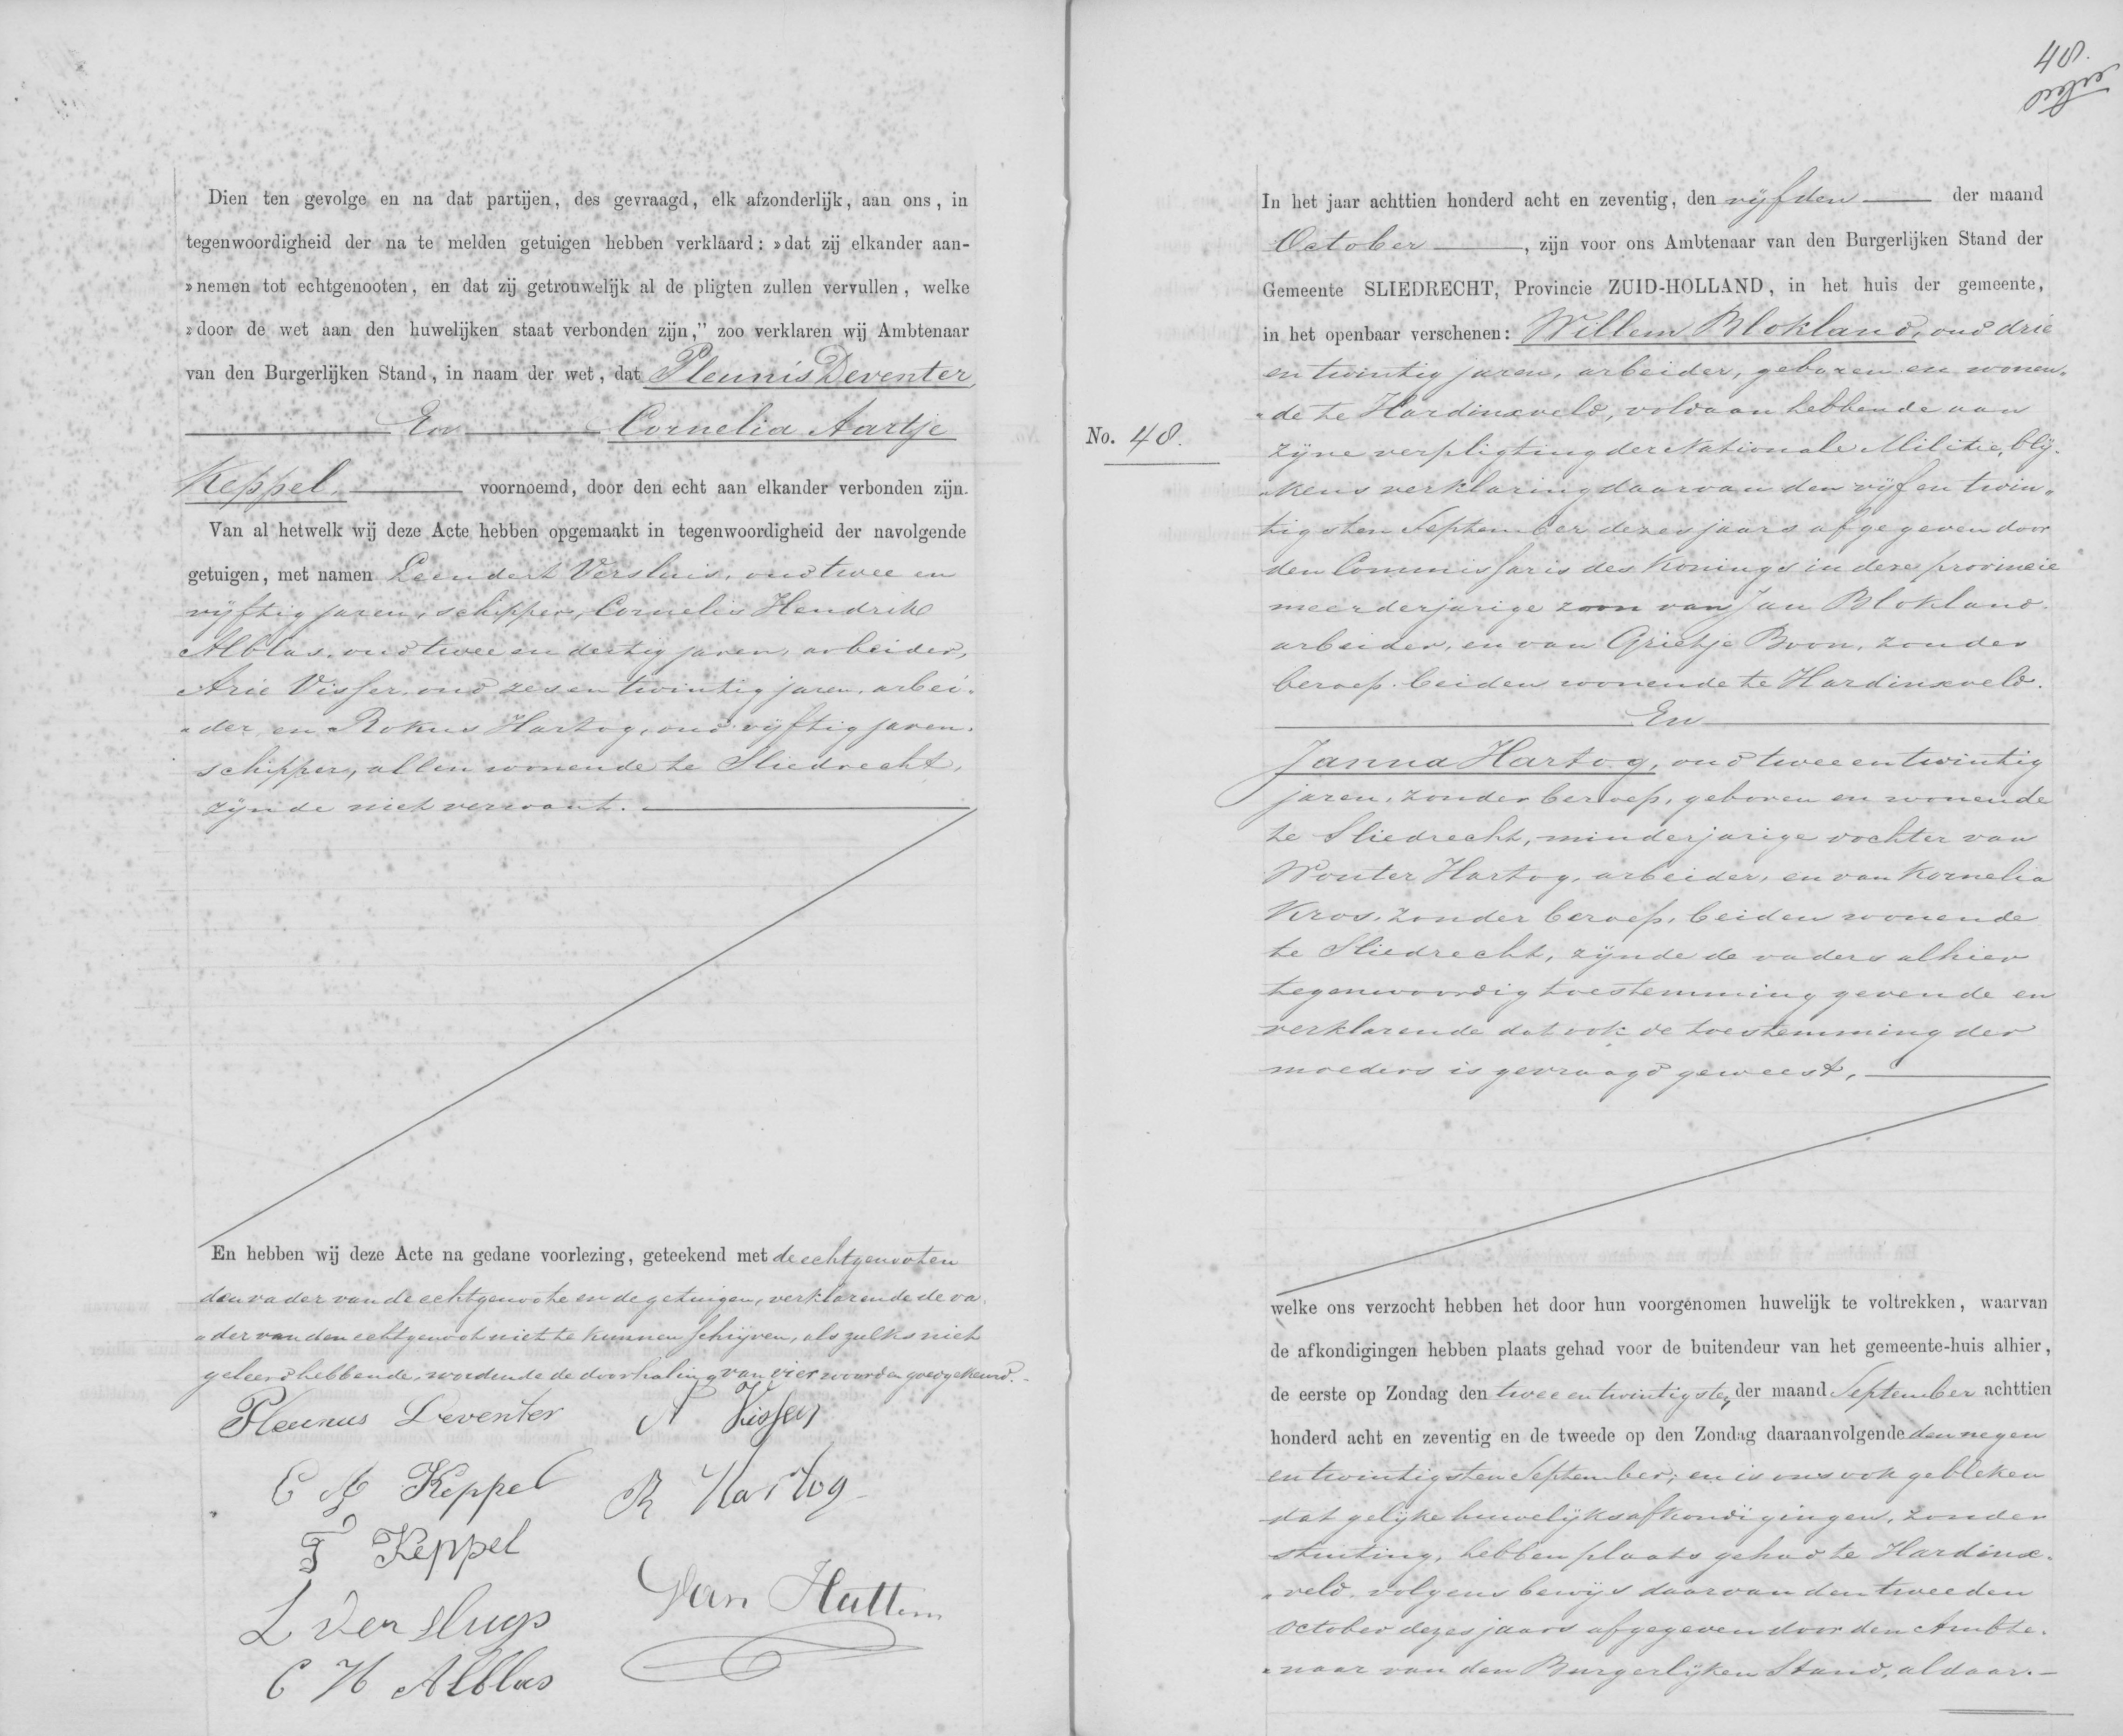 Dien ten gevolge en na dat partijen, des gevraagd, elk afzonderlijk, aan ons, in
tegenwoordigheid der na te melden getuigen hebben verklaard: »dat zij elkander aan-
»nemen tot echtgenooten, en dat zij getrouwelijk al de pligten zullen vervullen, welke
»door de wet aan den huwelijken staat verbonden zijn,” zoo verklaren wij Ambtenaar
van den Burgerlijken Stand, in naam der wet, dat Pleunis Deventer,
En Cornelia Aartje
Keppel, voornoemd, door den echt aan elkander verbonden zijn.
Van al hetwelk wij deze Acte hebben opgemaakt in tegenwoordigheid der navolgende
getuigen, met namen Leendert Versluis, oud twee en
vijftig jaren, schipper, Cornelis Hendrik
Alblas, oud twee en dertig jaren, arbeider,
Arie Visser, oud zes en twintig jaren, arbei-
„der, en Rokus Hartog, oud vijftig jaren,
schipper, allen wonende te Sliedrecht,
zijnde niet verwant.
En hebben wij deze Acte na gedane voorlezing, geteekend met de echtgenooten
den vader van de echtgenoote en de getuigen, verklarende de va-
„der van den echtgenoot niet te kunnen schrijven, als zulks niet
geleerd hebbende, wordende de doorhaling van vier woorden goedgekeurd.
Pleunus Deventer
A Visser
C A Keppel
R Hartog
T Keppel
L Versluys
Van Hattem
C H Alblas
48.
In het jaar achttien honderd acht en zeventig, den vijfden der maand
October, zijn voor ons Ambtenaar van den Burgerlijken Stand der
Gemeente SLIEDRECHT, Provincie ZUID-HOLLAND, in het huis der gemeente,
in het openbaar verschenen: Willem Blokland, oud drie
en twintig jaren, arbeider, geboren en wonen-
„de te Hardinxveld, voldaan hebbende aan
No. 48.
zijne verpligting der Nationale Militie, blij-
„kens verklaring daarvan den vijf en twin-
tigsten September dezes jaars afgegeven door
den Commissaris des Konings in deze provincie
meerderjarige zoon van Jan Blokland,
arbeider, en van Grietje Boon, zonder
beroep, beiden wonende te Hardinxveld.
En
Janna Hartog, oud twee en twintig
jaren, zonder beroep, geboren en wonende
te Sliedrecht, minderjarige dochter van
Wouter Hartog, arbeider, en van Kornelia
Kros, zonder beroep, beiden wonende
te Sliedrecht, zijnde de vaders alhier
tegenwoordig toestemming gevende en
verklarende dat ook de toestemming der
moeders is gevraagd geweest,
welke ons verzocht hebben het door hun voorgenomen huwelijk te voltrekken, waarvan
de afkondigingen hebben plaats gehad voor de buitendeur van het gemeente-huis alhier,
de eerste op Zondag den twee en twintigsten der maand September achttien
honderd acht en zeventig en de tweede op den Zondag daaraanvolgende den negen
en twintigsten September; en is ons ook gebleken
dat gelijke huwelijksafkondigingen, zonder
stuiting, hebben plaats gehad te Hardinx-
„veld, volgens bewijs daarvan den tweeden
October dezes jaars afgegeven door den Ambte-
„naar van den Burgerlijken Stand, aldaar.